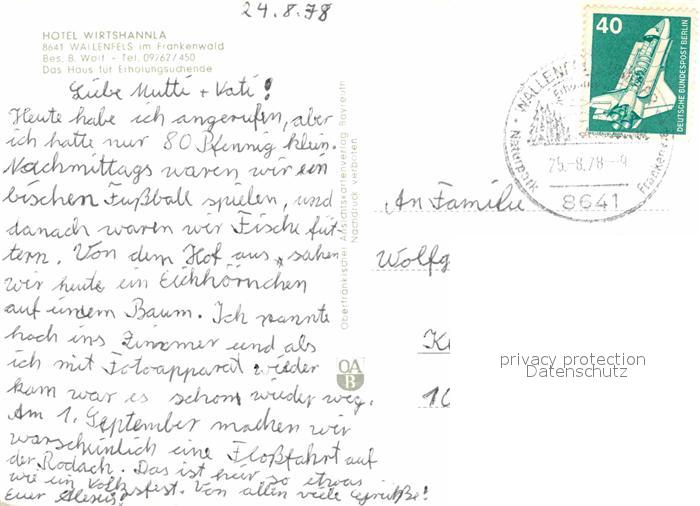 24.8.78
HOTEL WIRTSHANNLA
8641 WALLENFELS im Frankenwald
Bes. B. Wolf - Tel. 09262/450
Das Haus für Erholungsuchende
Liebe Mutti + Vati!
Heute habe ich angerufen, aber
ich hatte nur 80 Pfennig klein.
Nachmittags waren wir ein
bischen Fußball spielen, und
danach waren wir Fische füt-
tern. Von dem Hof aus, sahen
wir heute ein Eichhörnchen
auf einem Baum. Ich rannte
hoch ins Zimmer und als
ich mit Fotoapparat wieder
kam war es schon wieder weg.
Am 1. September machen wir
warscheinlich eine Floßfahrt auf
der Rodach. Das ist hier so etwas
wie ein Volksfest. Von allen viele Grüße!
Euer
Oberfränkischer Ansichtskartenverlag Bayreuth
Nachdruck verboten
OA
B
40
DEUTSCHE BUNDESPOST BERLIN
WALLENF
Naturpark
Frankenw
25.-8.78-9
8641
An Familie
Wolfg
K
10
privacy protection
Datenschutz